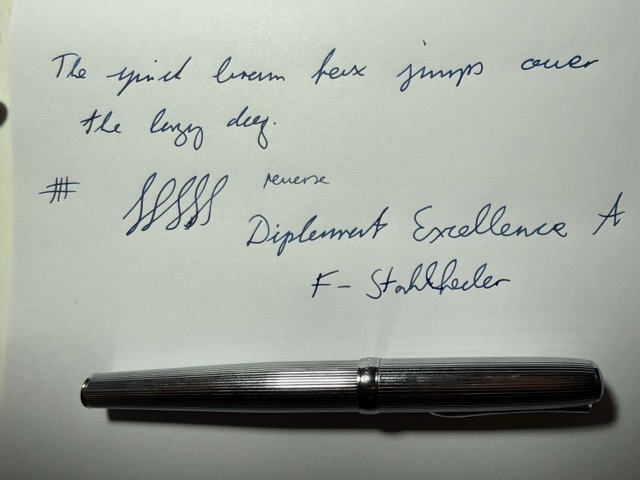 The quick brown fox jumps over
the lazy dog.
# reverse
Diplomat Excellence A
F - Stahlfeder